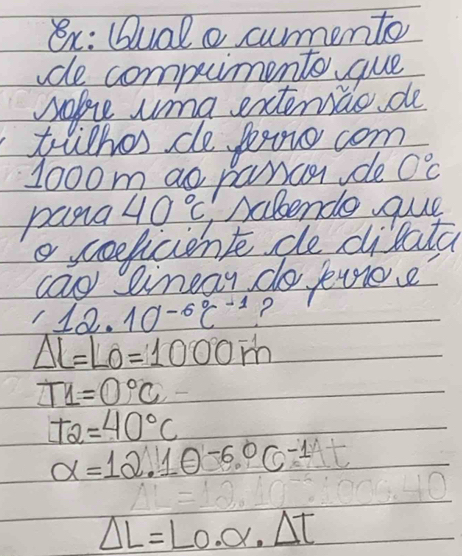 Ex: Qual o aumento
de comprimento que
sofre uma extensão de
trilhos de ferro com
1000m ao passar de 0°c
para 40°C, sabendo que
o coeficiente de dilata
ção linear do ferro é
12.10⁻⁶°C⁻¹?
ΔL=Lo=1000m
T1=0°C
T2=40°C
α=12.10⁻⁶.°C⁻¹
ΔL=12.10⁻⁶.1000.40
ΔL=Lo.α.ΔT